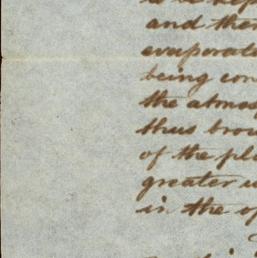 to be kept
and then
evaporate
being con
the atmos
thus brou
of the pla
greater u
in the op